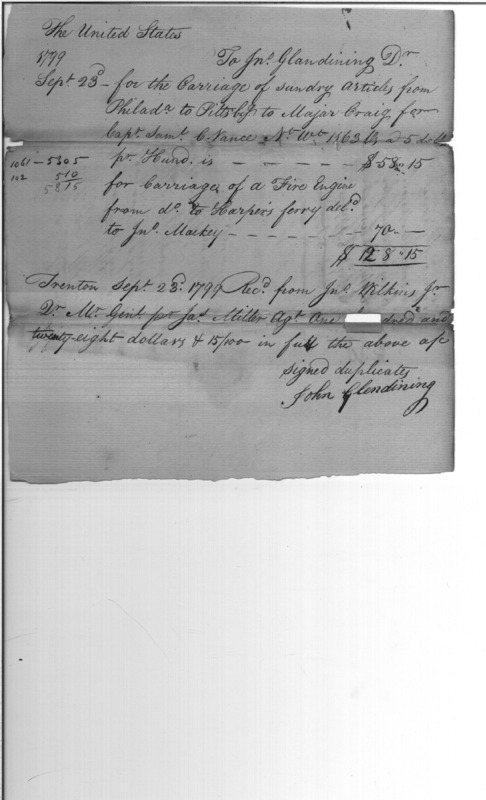 The United States
1799 To Jnº Glandining Dr
Sept 23d – for the Carriage of sundry articles from
Philada to Pittsbg to Major Craig for
Capt. Saml. C. Vance Nt. Wt. 1163 lb a 5 do
1061 – 5305 pr. Hund. is – – – – – $58 15
102 510
5815
for Carriage of a Fire Engine
from do. to Harper's ferry deld
to Jnº Mackey – – – – – 70 –
$128 15
Trenton Sept 23d. 1799 Recd. from Jnº Wilkins Jr
Qr. Mr. Genl. pr Jas Miller Agt One dred and
twenty-eight dollars & 15/100 in full the above a/c
signed duplicates
John Glendining